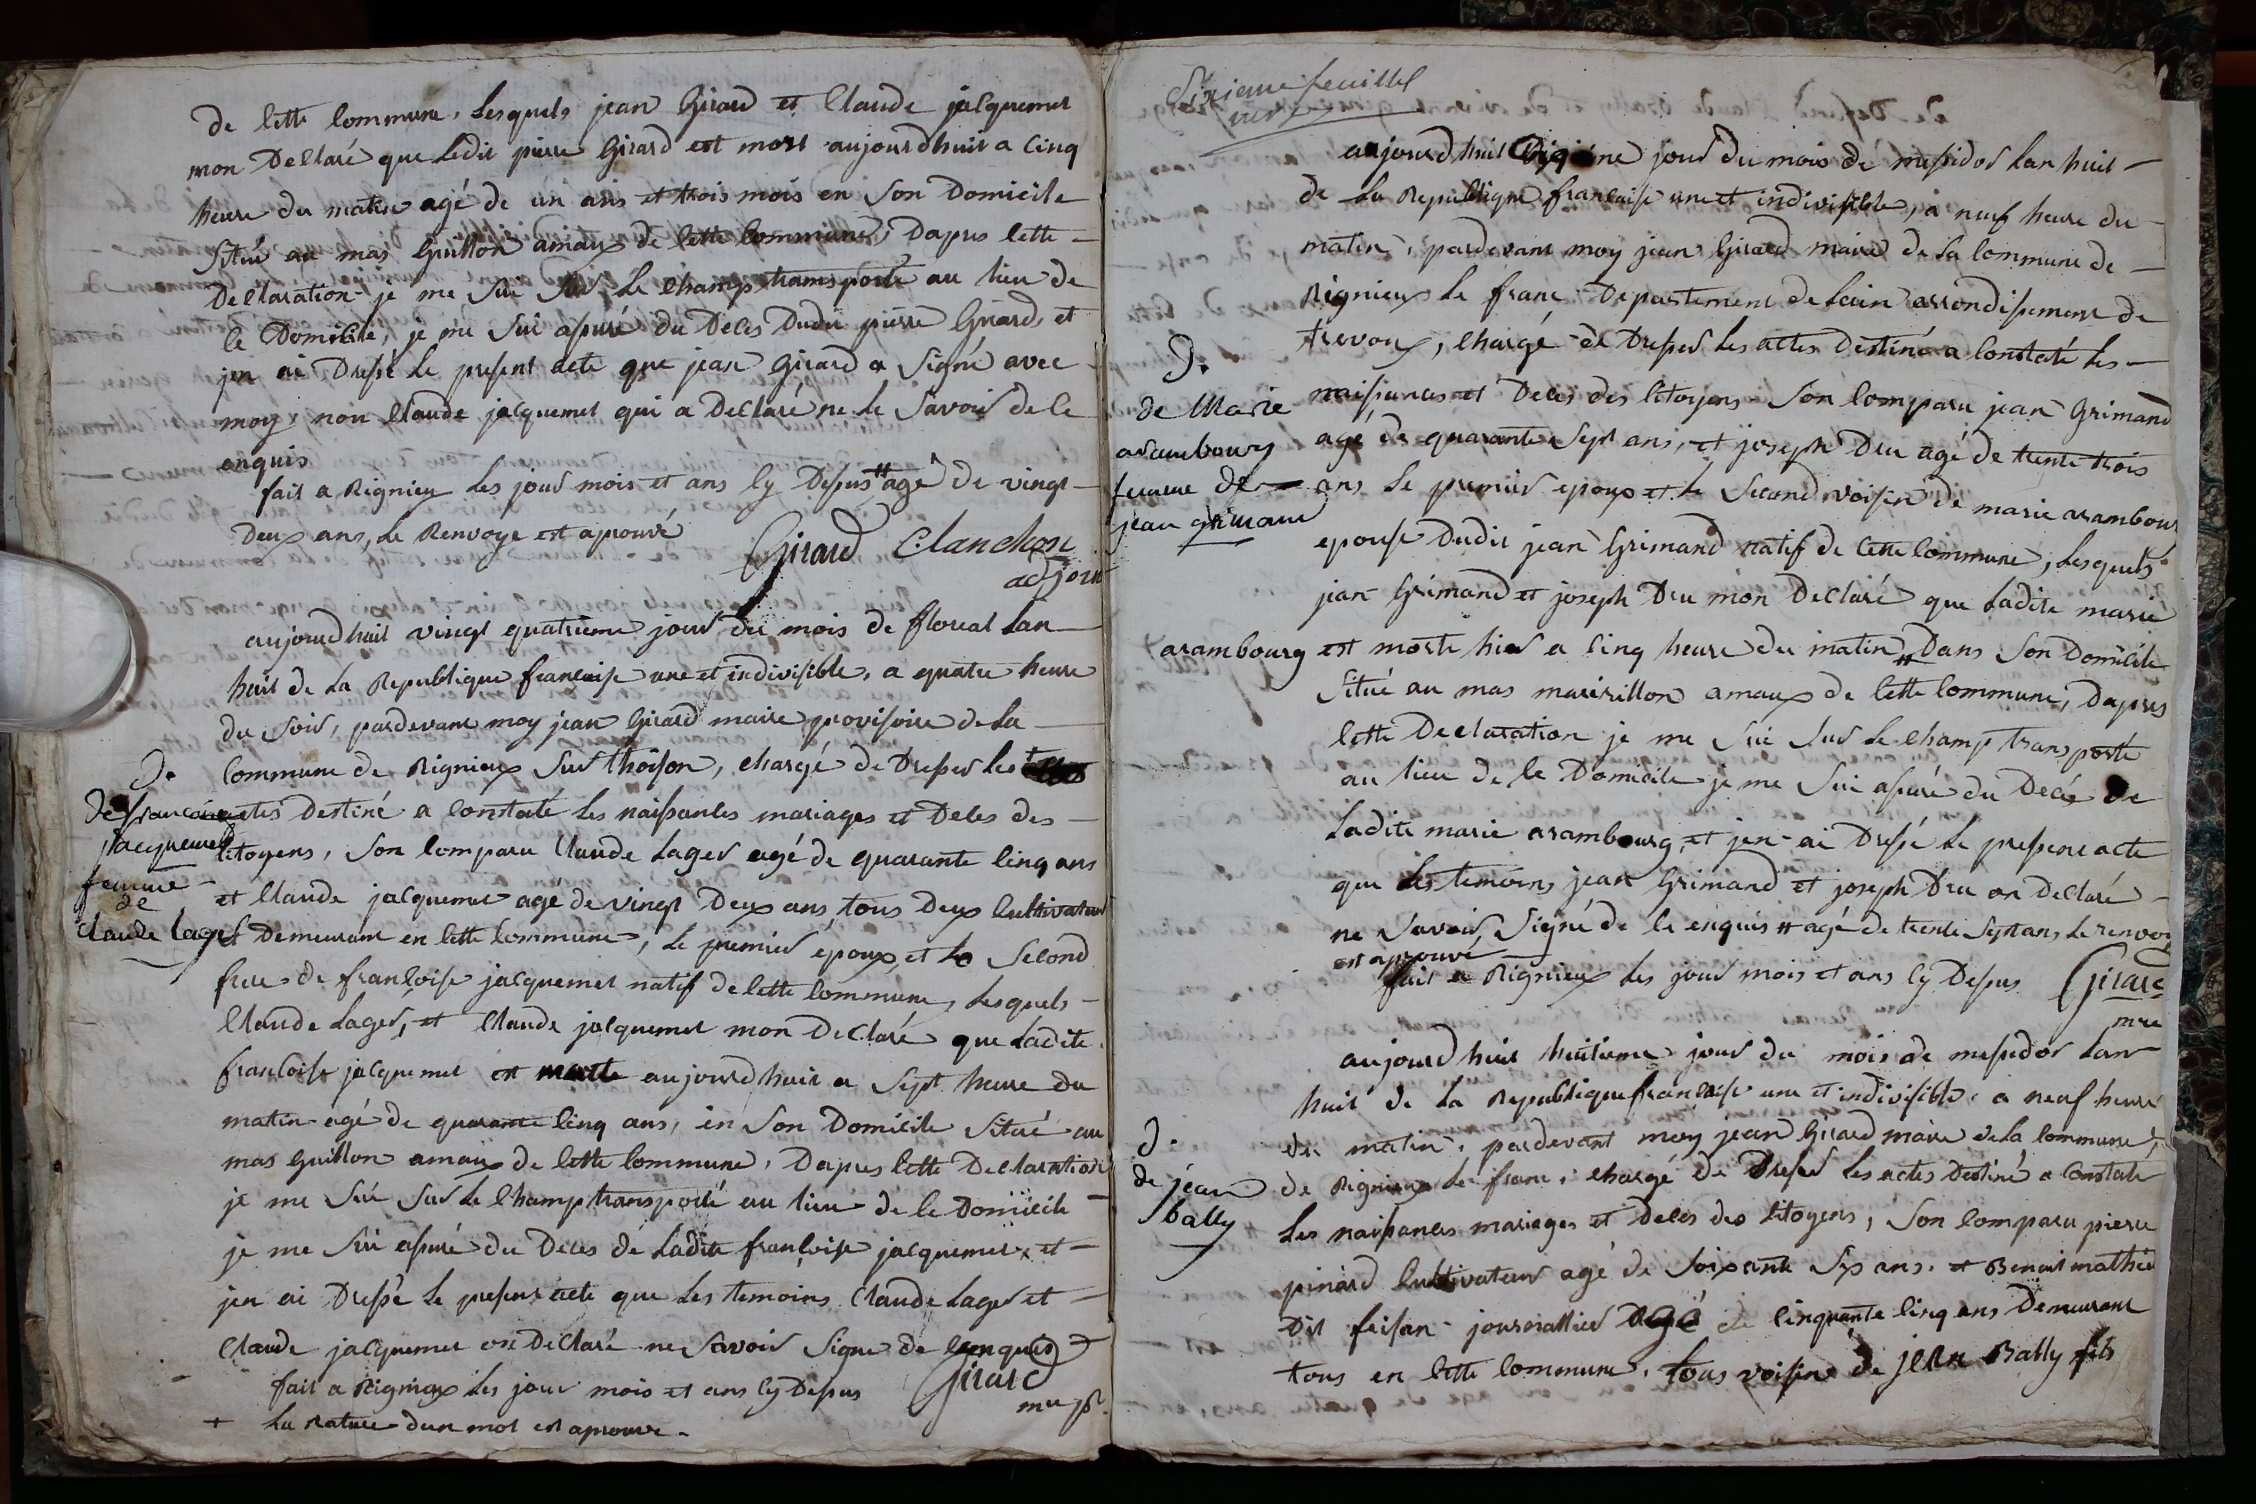 de Cette Commune, Lesquels jean Girard et Claude jacquemet
mon Declaré que Ledit pierre Girard est mort aujourdhuit a Cinq
heure du matin agé de un ans et trois mois en Son Domicile
Situé au mas Guillon amaux de Cette Commune, Dapres Cette
Declaration je me Sui Sur Le Champ transporté au lieu de
Ce Domicile, je me Sui assuré du Deces Dudit pierre Girard, et
jen ai Dressé Le present acte que jean Girard a Signé avec
moy, non Claude jacquemet qui a Declaré ne Le Savoir de Ce
enquis
fait a Rignieu Les jour mois et ans Cy Dessus # agé de vingt
Deux ans, Le Renvoye est aprouvé
Girard C. Lanchon
adjoin
aujourdhuit vingt quatrieme jour du mois de floreal Lan
huit de La Republique francaise une et indivisible, a quatre heure
du Soir, pardevant moy jean Girard maire provisoire de La
D.
de francoise
jacquemet
femme
de
Claude Lager
Commune de Rignieux Sur Thoison, Chargé de Dresser Les +
actes Destiné a Constaté Les naissances mariages et Deces des
Citoyens, Son Comparu Claude Lager agé de quarante Cinq ans
et Claude jacquemet agé de vingt Deux ans, tous Deux Cultivateur
et Demeurant en Cette Commune, Le premier epoux, et Le Second
frere de francoise jacquemet natif de Cette Commune, Lesquels
Claude Lager, et Claude jacquemet mon Declaré que Ladite
francoise jacquemet est morte aujourdhuit a Sept heure du
matin agé de quarante Cinq ans, en Son Domicile Situé au
mas Guillon amaux de Cette Commune, Dapres Cette Declaration
je me Sui Sur Le Champ transporté au lieu de Ce Domicile
je me Sui assuré du Deces de Ladite francoise jacquemet, et
jen ai Dressé Le present acte que Les temoins Claude Lager et
Claude jacquemet on Declaré ne Savoir Signe de Ce enquis
fait a Rignieux Les jour mois et ans Cy Dessus
Girard
mre
+ La Rature dun mot est aprouve
Sixieme feuillet
aujourdhuit jour du mois de messidor Lan huit
de La Republique francaise une et indivisible, a neuf heure du
matin, pardevant moy jean Girard maire de La Commune de
Rignieux Le franc Departement de Lain arrondissement de
trevoux, Chargé de Dresser Les actes Destiné a Constaté Les
D.
de Marie
arambourg
femme de
jean grimand
naissances et Deces des Citoyens Son Comparu jean Grimand
agé de quarante Sept ans, et joseph Dru agé de trente trois
ans Le premier epoux et Le Second voisin de marie arambour
epouse Dudit jean Grimand natif de Cette Commune, Lesquels
jean Grimand et joseph Dru mon Declaré que Ladite marie
arambourg est morte hier a Cinq heure du matin # Dans Son Domicile
Situé au mas amaux de Cette Commune, Dapres
Cette Declaration je me Sui Sur Le Champ transporté
au lieu de Ce Domicile je me Sui assuré du Decés de
Ladite marie arambourg, et jen ai Dressé Le present acte
que Les temoins jean Grimand et joseph Dru on Declaré
ne Savoir Signé de Ce enquis # agé de trente Sept ans, Le renvoy
est aprouvé
fait a Rignieux Les jour mois et ans Cy Dessus
Girard
mre
aujourdhuit huitieme jour du mois de messidor Lan
huit de La Republique francaise une et indivisible, a neuf heure
D.
de jean
bally
du matin, pardevant moy jean Girard maire de La Commune
de Rignieux Le franc, Chargé de Dresser Les actes Destiné a Constate
Les naissances mariages et Deces des Citoyens, Son Comparu pierre
pinard Cultivateur agé de Soixante Six ans, et Benoit mathieu
Dit journallier agé de Cinquante Cinq ans Demeurant
tous en Cette Commune, tous voisins de jean Bally fils